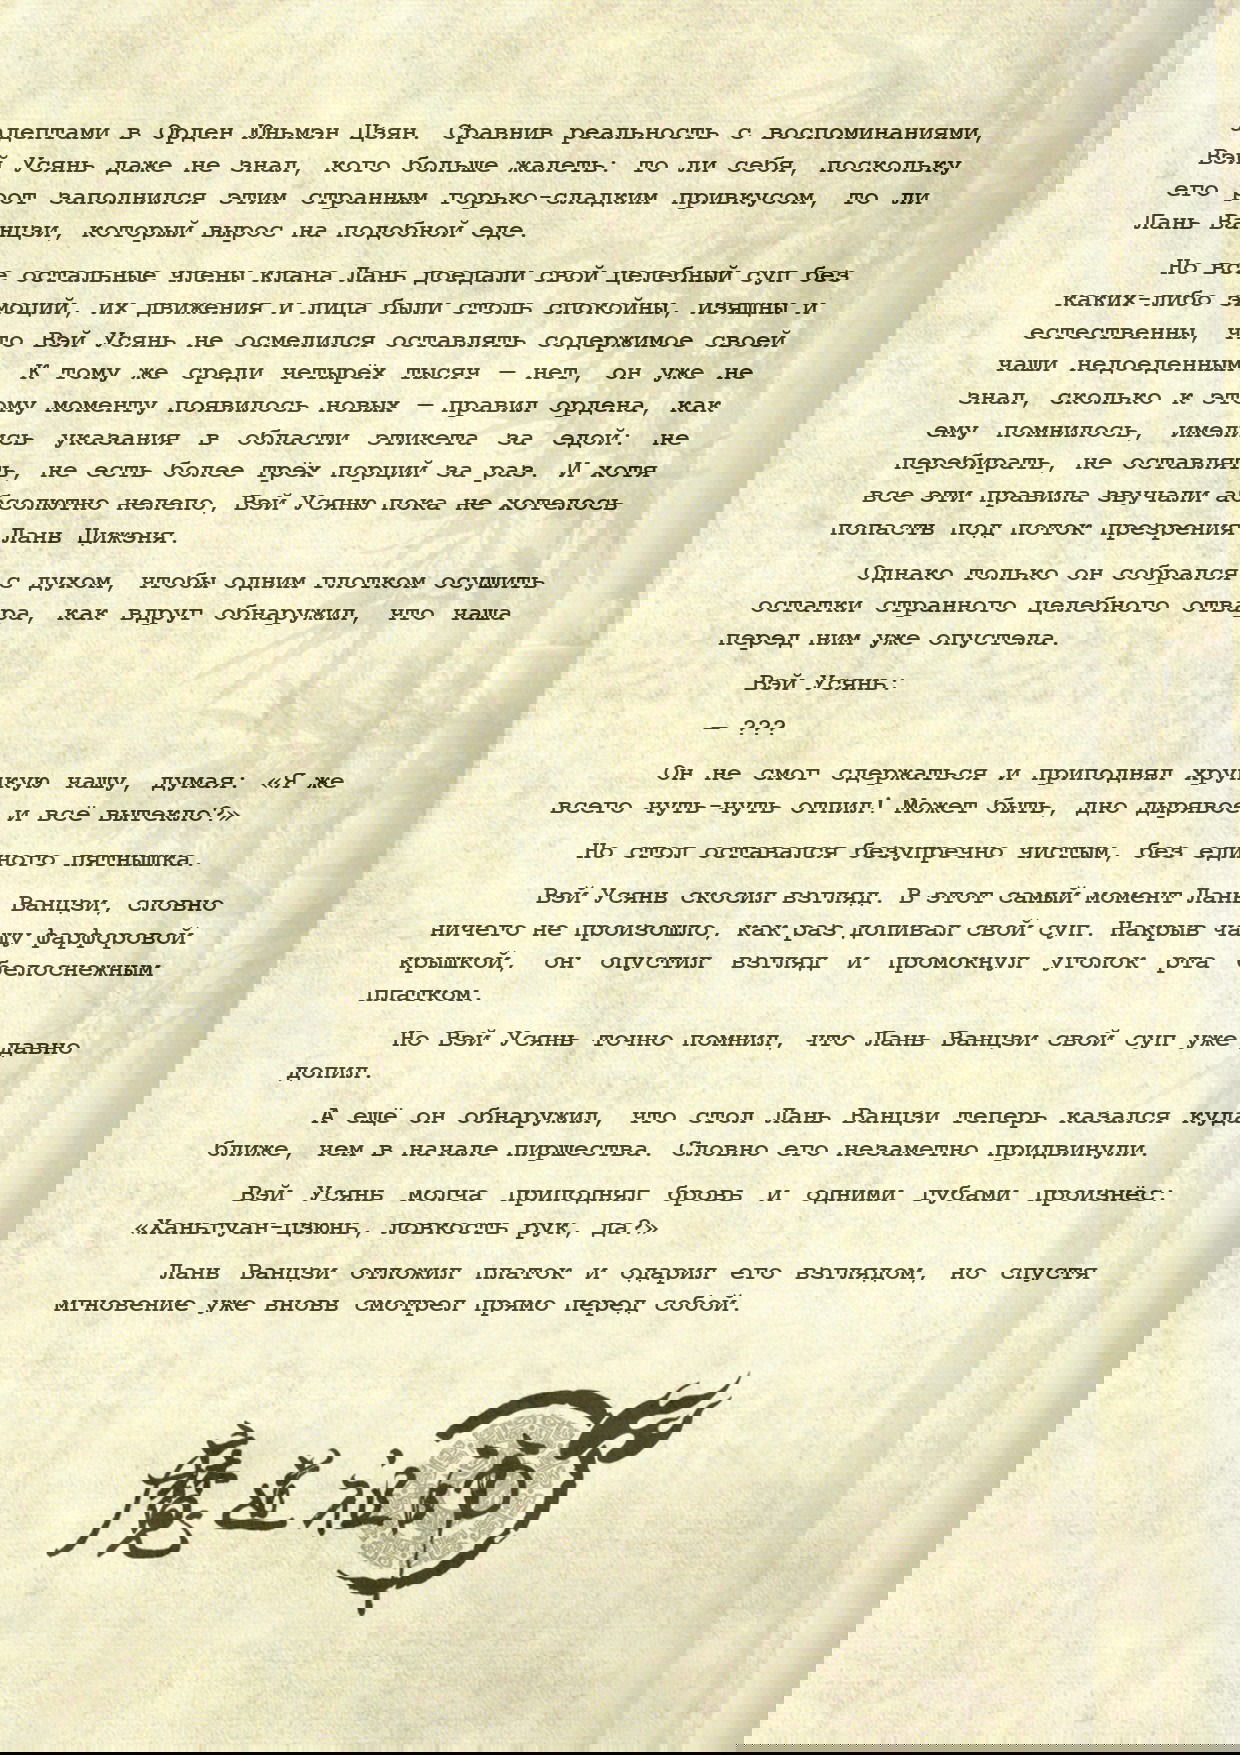 адептами в Орден Юньмэн Цзян. Сравнив реальность с воспоминаниями,
Вэй Усянь даже не знал, кого больше жалеть: то ли себя, поскольку
его рот заполнился этим странным горько-сладким привкусом, то ли
Лань Ванцзи, который вырос на подобной еде.
Но все остальные члены клана Лань доедали свой целебный суп без
каких-либо эмоций, их движения и лица были столь спокойны, изящны и
естественны, что Вэй Усянь не осмелился оставлять содержимое своей
чаши недоеденным. К тому же среди четырёх тысяч — нет, он уже не
знал, сколько к этому моменту появилось новых — правил ордена, как
ему помнилось, имелись указания в области этикета за едой: не
перебирать, не оставлять, не есть более трёх порций за раз. И хотя
все эти правила звучали абсолютно нелепо, Вэй Усяню пока не хотелось
попасть под поток презрения Лань Цижэня.
Однако только он собрался с духом, чтобы одним глотком осушить
остатки странного целебного отвара, как вдруг обнаружил, что чаша
перед ним уже опустела.
Вэй Усянь:
— ???
Он не смог сдержаться и приподнял хрупкую чашу, думая: «Я же
всего чуть-чуть отпил! Может быть, дно дырявое и всё вытекло?»
Но стол оставался безупречно чистым, без единого пятнышка.
Вэй Усянь скосил взгляд. В этот самый момент Лань Ванцзи, словно
ничего не произошло, как раз допивал свой суп. Накрыв чашу фарфоровой
крышкой, он опустил взгляд и промокнул уголок рта белоснежным
платком.
Но Вэй Усянь точно помнил, что Лань Ванцзи свой суп уже давно
допил.
А ещё он обнаружил, что стол Лань Ванцзи теперь казался куда
ближе, чем в начале пиршества. Словно его незаметно придвинули.
Вэй Усянь молча приподнял бровь и одними губами произнёс:
«Ханьгуан-цзюнь, ловкость рук, да?»
Лань Ванцзи отложил платок и одарил его взглядом, но спустя
мгновение уже вновь смотрел прямо перед собой.
魔道祖师